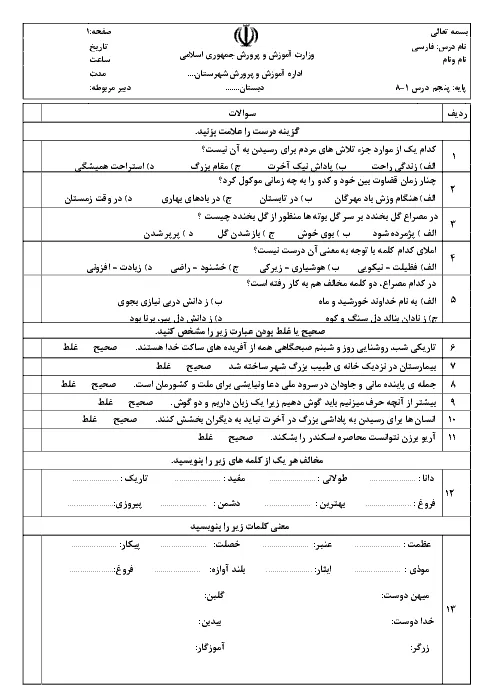 بسمه تعالی
صفحه:۱
نام درس: فارسی
تاریخ
نام ونام
وزارت آموزش و پرورش جمهوری اسلامی
ساعت
اداره آموزش و پرورش شهرستان...
مدت
پایه: پنجم درس ۱-۸
دبستان.......
دبیر مربوطه:
ردیف سوالات
گزینه درست را علامت بزنید.
۱ کدام یک از موارد جزء تلاش های مردم برای رسیدن به آن نیست؟
الف) زندگی راحت ب) پاداش نیک آخرت ج) مقام بزرگ د) استراحت همیشگی
۲ چنار زمان قضاوت بین خود و کدو را به چه زمانی موکول کرد؟
الف) هنگام وزش باد مهرگان ب) در تابستان ج) در بادهای بهاری د) در وقت زمستان
۳ در مصراع گل بخندد بر سر گل بوته ها منظور از گل بخندد چیست ؟
الف ) پژمرده شود ب ) بوی خوش ج ) باز شدن گل د ) پر پر شدن
۴ املای کدام کلمه با توجه به معنی آن درست نیست؟
الف) فظیلت - نیکویی ب) هوشیاری - زیرکی ج) خشنود - راضی د) زیادت - افزونی
۵ در کدام مصراع، دو کلمه مخالف هم به کار رفته است؟
الف) به نام خداوند خورشید و ماه ب) ز دانش دربی نیازی بجوی
ج) ز نادان بنالد دل سنگ و کوه د) ز دانش دل پیر برنا بود
صحیح یا غلط بودن عبارت زیر را مشخص کنید.
۶ تاریکی شب، روشنایی روز و شبنم صبحگاهی همه از آفریده های ساکت خدا هستند. صحیح غلط
۷ بیمارستان در نزدیک خانه ی طبیب بزرگ شهر ساخته شد صحیح غلط
۸ جمله ی پاینده مانی و جاودان در سرود ملی دعا ونیایشی برای ملت و کشورمان است. صحیح غلط
۹ بیشتر از آنچه حرف میزنیم باید گوش دهیم زیرا یک زبان داریم و دو گوش. صحیح غلط
۱۰ انسان ها برای رسیدن به پاداشی بزرگ در آخرت نباید به دیگران بخشش کنند. صحیح غلط
۱۱ آریو برزن نتوانست محاصره اسکندر را بشکند. صحیح غلط
مخالف هر یک از کلمه های زیر را بنویسید.
۱۲ دانا : ................ طولانی : ................ مفید : ................ تاریک : ................
فروغ : ................ بهترین : ................ دشمن : ................ پیروزی:................
معنی کلمات زیر را بنویسید
۱۳ عظمت : ................ عنبر: ................ خصلت: ................ پیکار: ................
موذی : ................ ایثار: ................ بلند آوازه: ................ فروغ:................
میهن دوست: گلبن:
خدا دوست: بیدین:
زرگر: آموزگار: